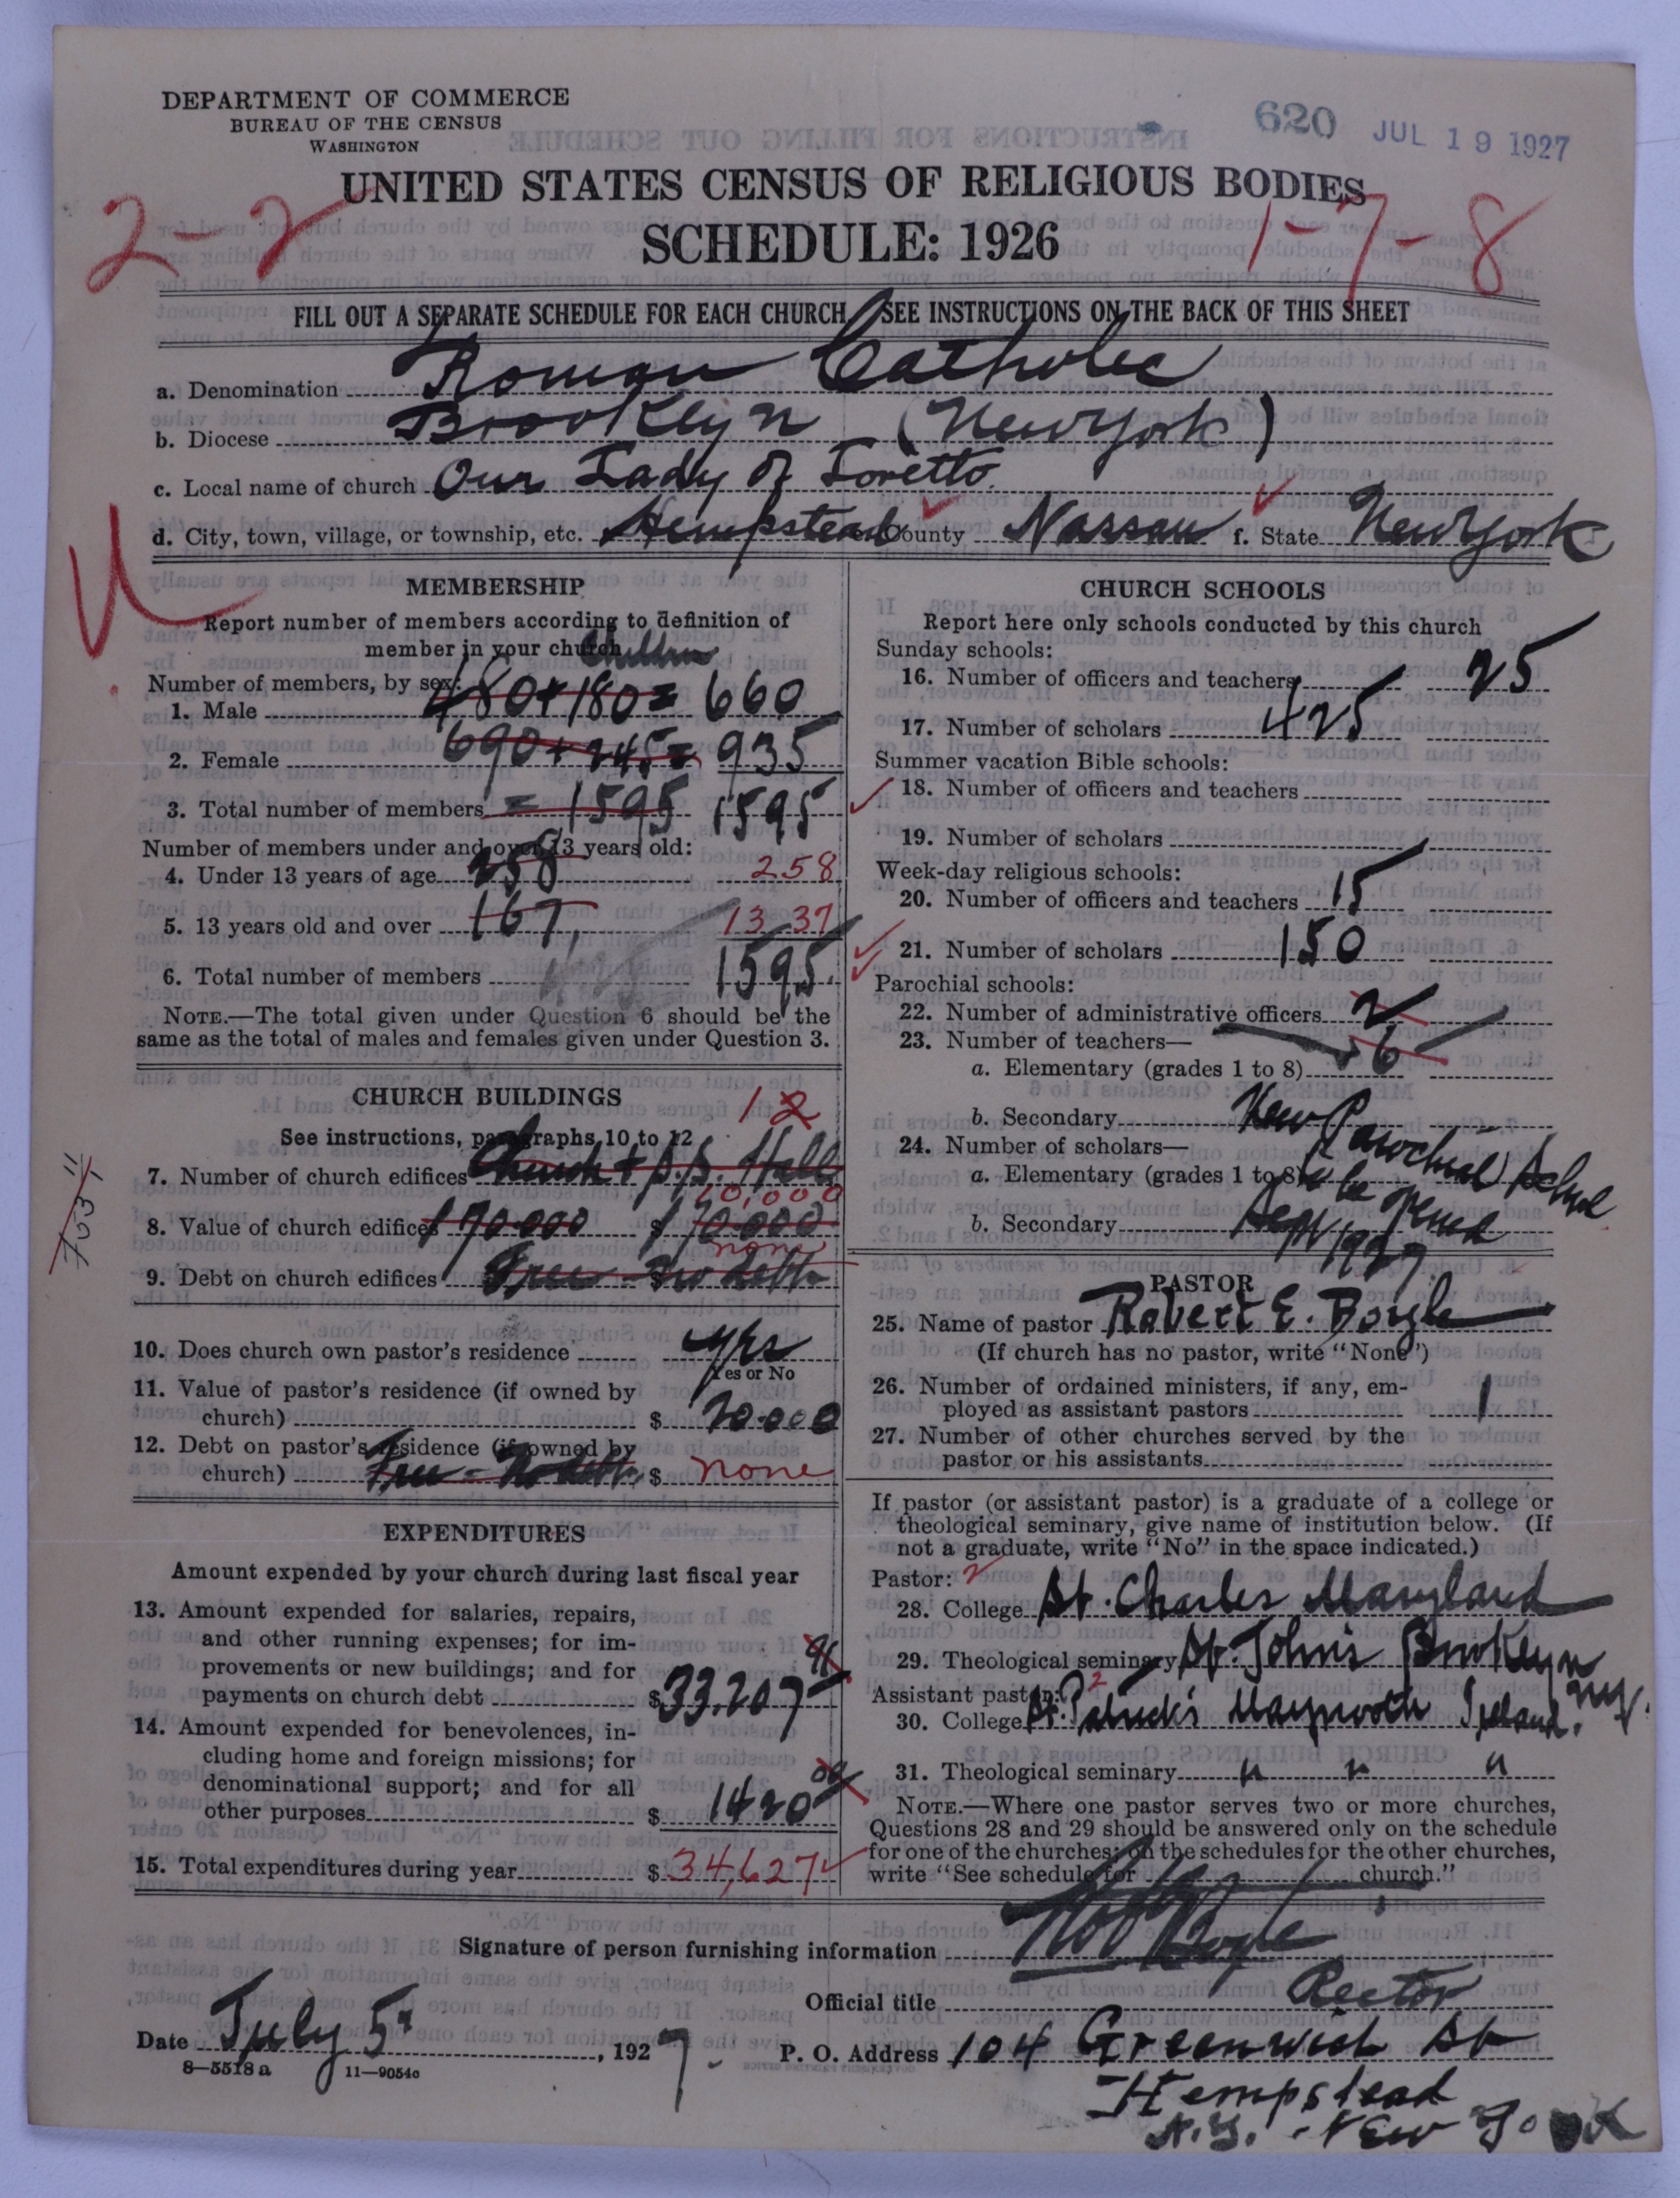 DEPARTMENT OF COMMERCE
BUREAU OF THE CENSUS
WASHINGTON
620 JUL 19 1927
UNITED STATES CENSUS OF RELIGIOUS BODIES
SCHEDULE: 1926
2-2
1-7-8
FILL OUT A SEPARATE SCHEDULE FOR EACH CHURCH SEE INSTRUCTIONS ON THE BACK OF THIS SHEET
a. Denomination Roman Catholic
b. Diocese Brooklyn (New York)
c. Local name of church Our Lady of Loretto
d. City, town, village, or township, etc. Hempstead County Nassau f. State New York
MEMBERSHIP
Report number of members according to definition of
member in your church
Children
Number of members, by sex:
1. Male 480+180= 660
2. Female 690+245= 935
3. Total number of members = 1595 1595
Number of members under and over 13 years old:
4. Under 13 years of age 258 258
5. 13 years old and over 167 1337
6. Total number of members 1595
NOTE.—The total given under Question 6 should be the
same as the total of males and females given under Question 3.
CHURCH BUILDINGS
See instructions, paragraphs 10 to 12
1 2
7. Number of church edifices Church + S.S. Hall
8. Value of church edifices $ 70.000
9. Debt on church edifices Free - No debt none
10. Does church own pastor's residence yes
Yes or No
11. Value of pastor's residence (if owned by
church) $ 20.000
12. Debt on pastor's residence (if owned by
church) Free - No debt $ none
EXPENDITURES
Amount expended by your church during last fiscal year
13. Amount expended for salaries, repairs,
and other running expenses; for im-
provements or new buildings; and for
payments on church debt $ 33.207
14. Amount expended for benevolences, in-
cluding home and foreign missions; for
denominational support; and for all
other purposes $ 1420
15. Total expenditures during year $ 34,627
CHURCH SCHOOLS
Report here only schools conducted by this church
Sunday schools:
16. Number of officers and teachers 25
17. Number of scholars 425
Summer vacation Bible schools:
18. Number of officers and teachers
19. Number of scholars
Week-day religious schools:
20. Number of officers and teachers 15
21. Number of scholars 150
Parochial schools:
22. Number of administrative officers 2
23. Number of teachers—
a. Elementary (grades 1 to 8) 6
b. Secondary New Parochial School
24. Number of scholars—
a. Elementary (grades 1 to 8) to be opened
b. Secondary Sept 1927
PASTOR
25. Name of pastor Robert E. Boyle
(If church has no pastor, write "None")
26. Number of ordained ministers, if any, em-
ployed as assistant pastors 1
27. Number of other churches served by the
pastor or his assistants
If pastor (or assistant pastor) is a graduate of a college or
theological seminary, give name of institution below. (If
not a graduate, write "No" in the space indicated.)
Pastor: 2
28. College St. Charles Maryland
29. Theological seminary St. John's Brooklyn N.Y.
Assistant pastor: 2
30. College St. Patrick's Maynooth Ireland.
31. Theological seminary " " "
NOTE.—Where one pastor serves two or more churches,
Questions 28 and 29 should be answered only on the schedule
for one of the churches; on the schedules for the other churches,
write "See schedule for church."
Signature of person furnishing information Rob Boyle
Official title Rector
Date July 5, 1927.
P. O. Address 104 Greenwich St
8-5518 a 11-9054c
Hempstead
N.Y. - New York